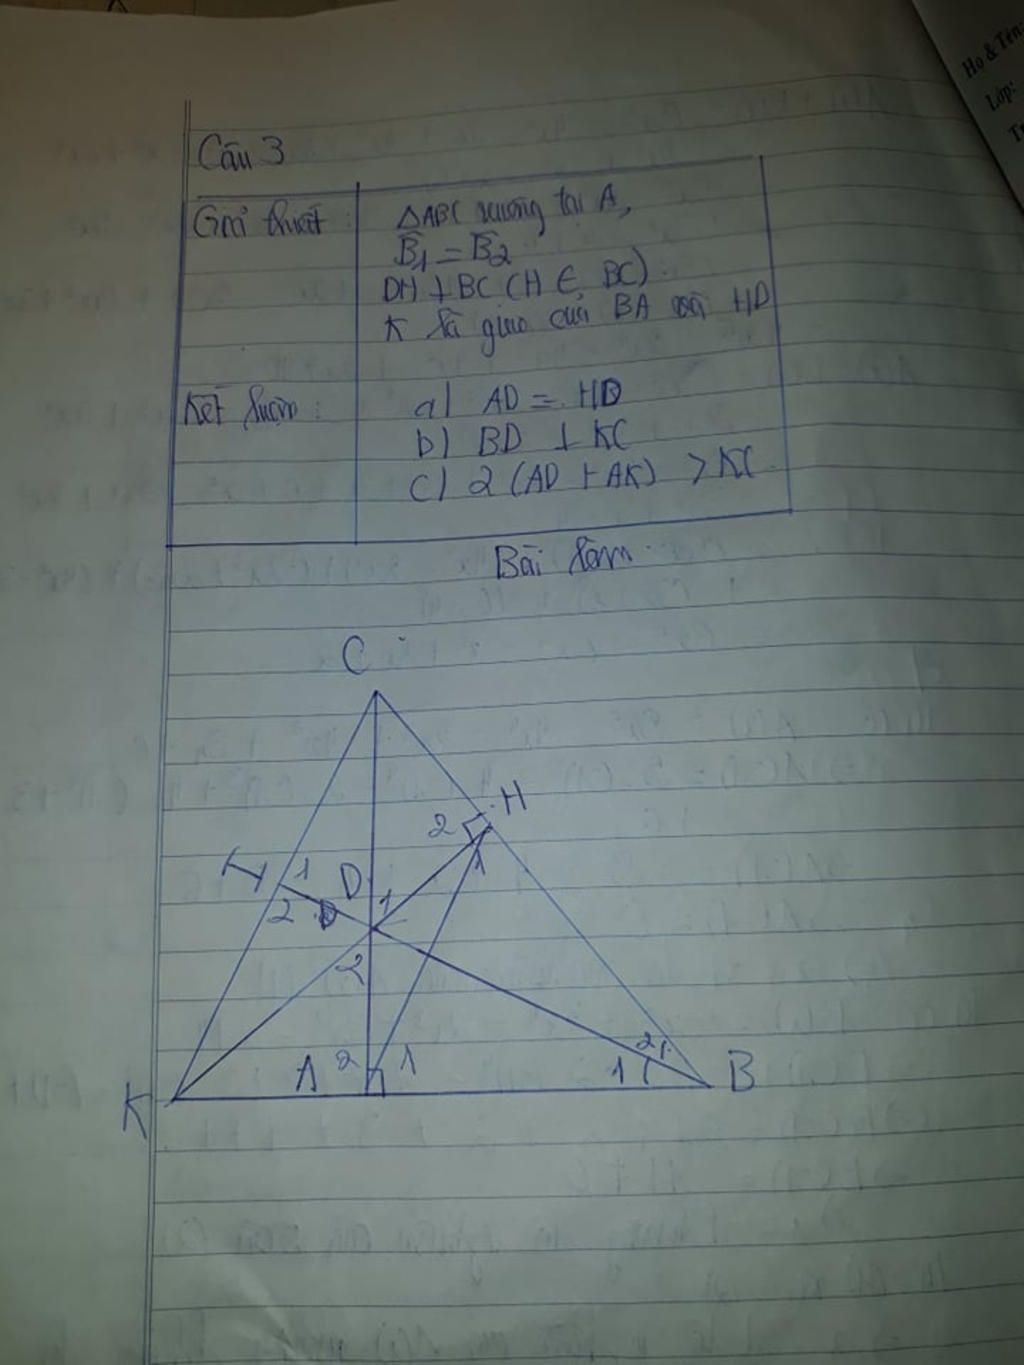 Họ & Tên:
Lớp:
Câu 3
Giả thiết: ΔABC vuông tại A,
B̂1 = B̂2
DH ⊥ BC (H ∈ BC).
K là giao của BA và HD
Kết luận: a) AD = HD
b) BD ⊥ KC
c) 2 (AD + AK) > KC
Bài làm
C
H
2
1
I 1 D 1
2
2
A 2 1 1 2 B
K